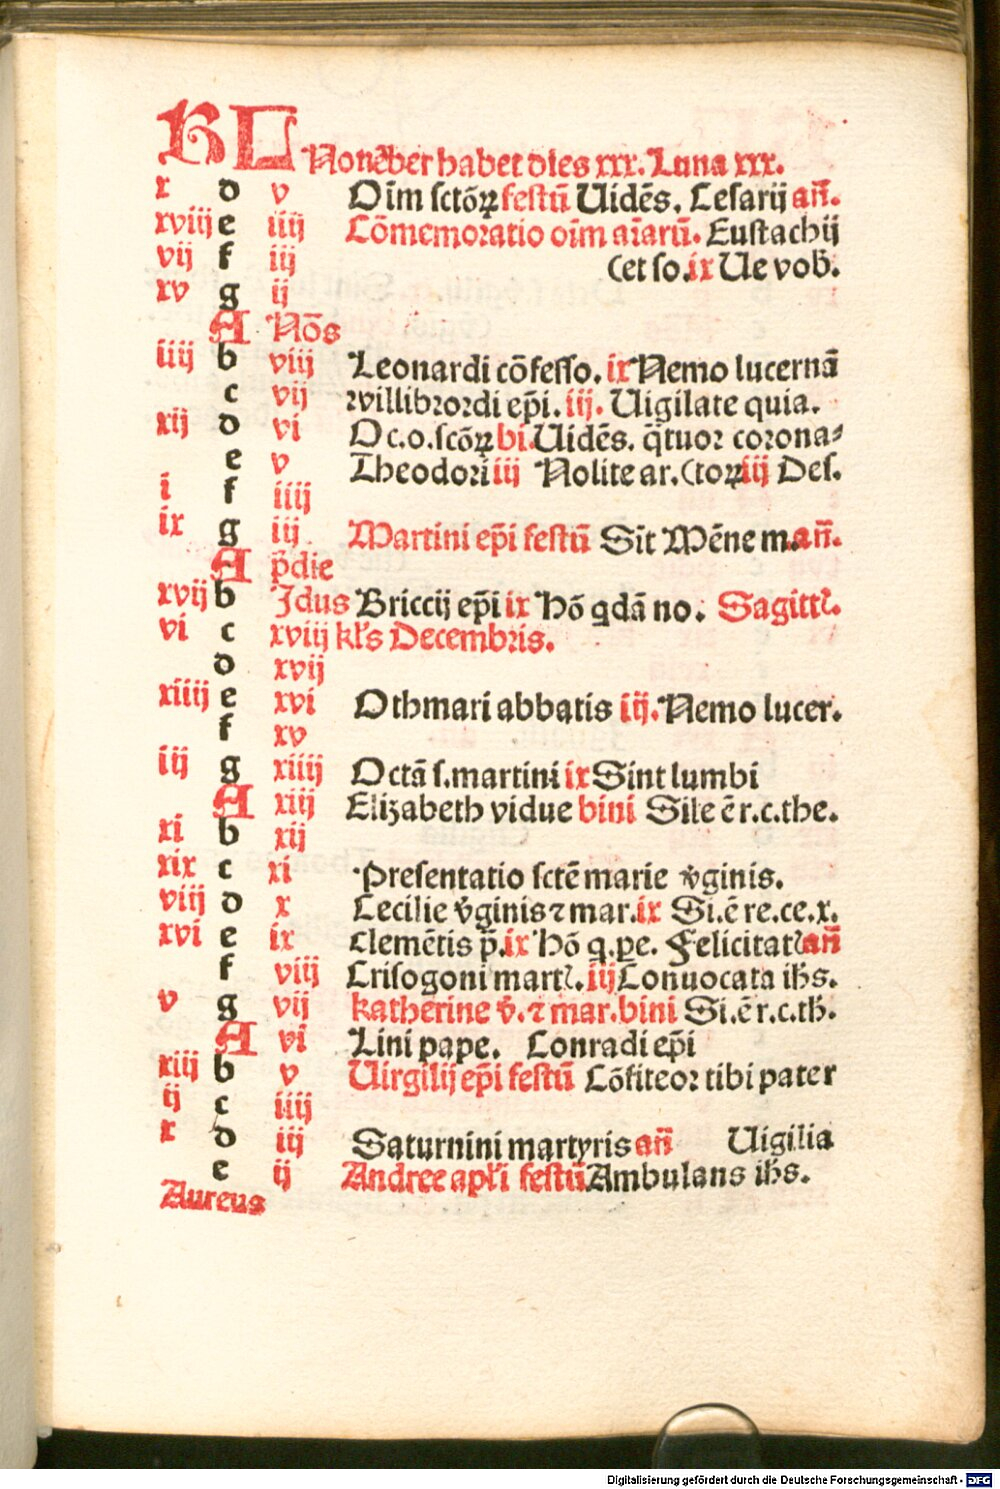 KL Nouẽber habet dies xxx. Luna xxx.
x d v Oĩm sctõꝝ festũ Uidẽs. Cesarij añ.
xviij e iiij Cõmemoratio oĩm aĩarũ. Eustachij
vij f iij (et so. ix Ue vob̃.
xv g ij
A Nõs
iiij b viij Leonardi cõfesso. ix Nemo lucernã
c vij ꝛvillibꝛoꝛdi ep̃i. iij. Uigilate quia.
xij d vi Oc.o.scõꝝ bi. Uidẽs. q̃tuoꝛ coꝛona⸗
e v Theodoꝛi iij Nolite ar. (toꝝ iij Des.
i f iiij
ix g iij Martini ep̃i festũ Sĩt Mẽne m. añ.
A p̃die
xvij b Idus Briccij ep̃i ix Hõ qdã no. Sagittꝭ.
vi c xviij kl̃s Decembꝛis.
d xvij
xiiij e xvi Othmari abbatis iij. Nemo lucer.
f xv
iij g xiiij Octã s. martini ix Sint lumbi
A xiij Elizabeth vidue bini Sile ẽ r.c.the.
xi b xij
xix c xi Presentatio sctẽ marie v̾ginis.
viij d x Cecilie v̾ginis ⁊ mar. ix Si.ẽ re.ce.x.
xvi e ix Clemẽtis p̃. ix Hõ q.pe. Felicitatꝭ añ
f viij Crisogoni martꝭ. iij Conuocata ih̃s.
v g vij Katherine v̾. ⁊ mar. bini Si.ẽ r.c.th̃.
A vi Lini pape. Conradi ep̃i
xiij b v Uirgilij ep̃i festũ Cõfiteoꝛ tibi pater
ij c iiij
x d iij Saturnini martyris añ Uigilia
e ij Andree apl̃i festũ Ambulans ih̃s.
Aureus
Digitalisierung gefördert durch die Deutsche Forschungsgemeinschaft - DFG